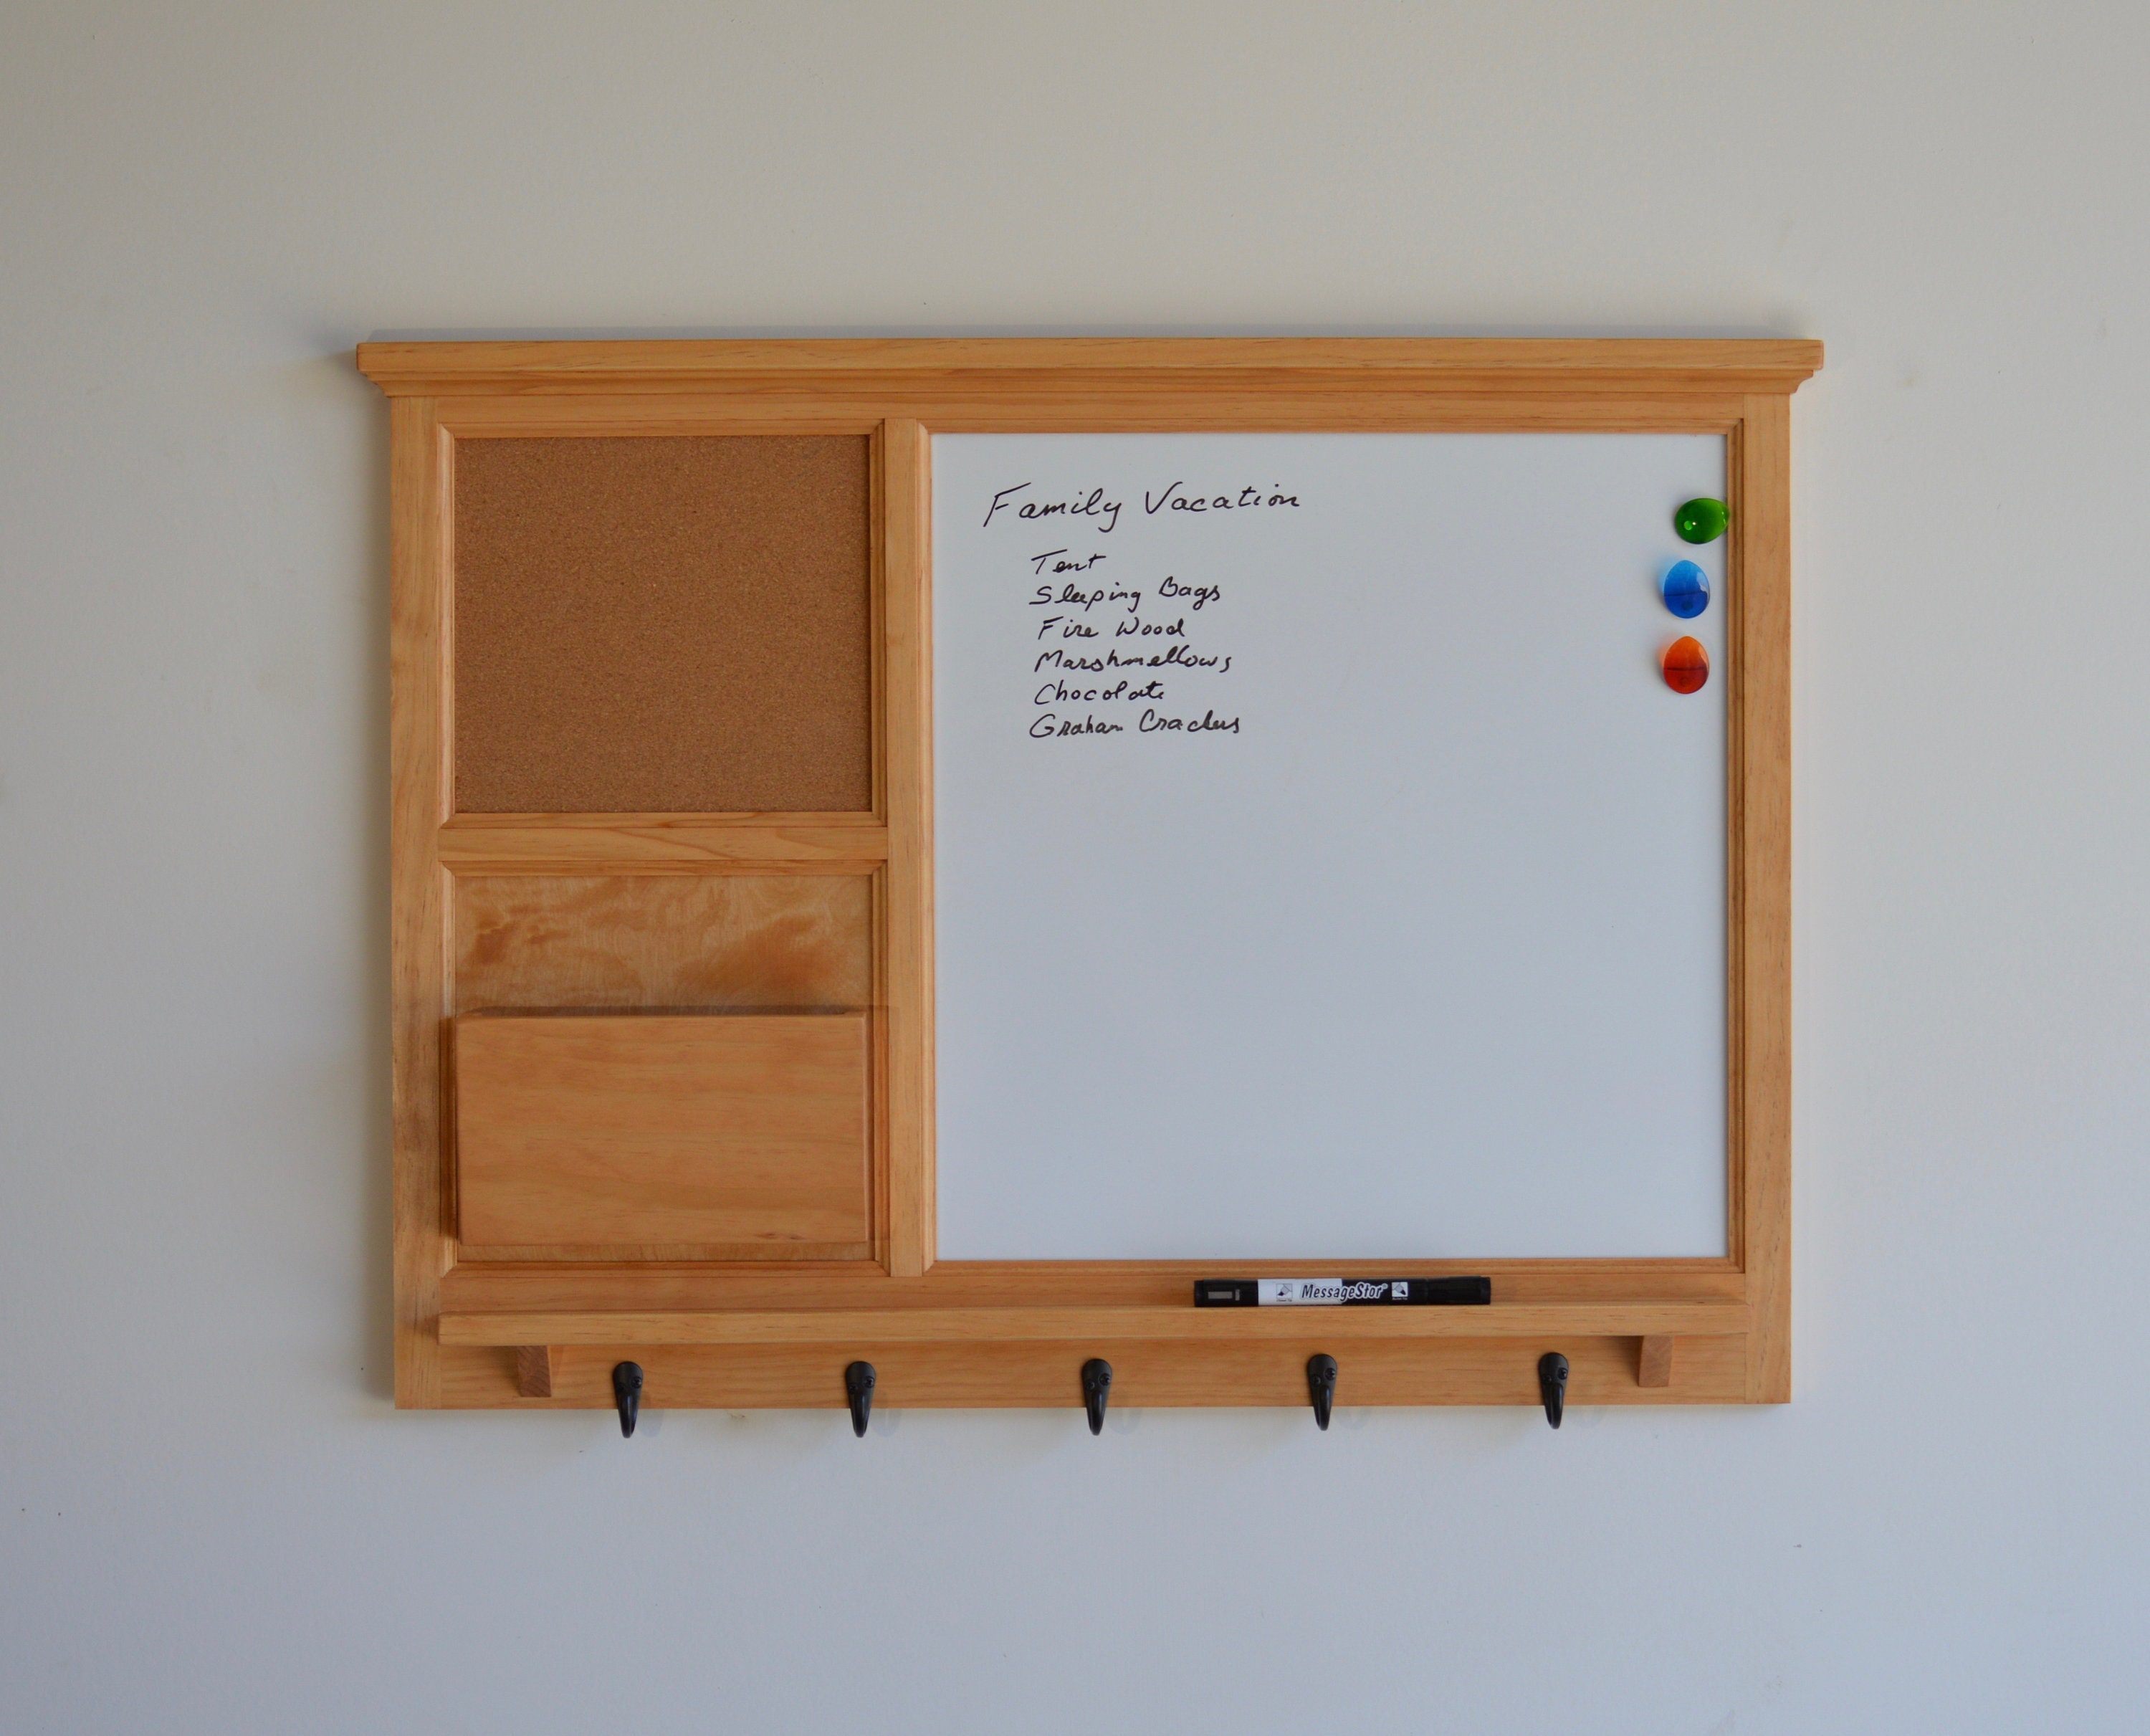 Family Vacation
Tent
Sleeping Bags
Fire Wood
Marshmellows
Chocolate
Graham Crackers
MessageStor®